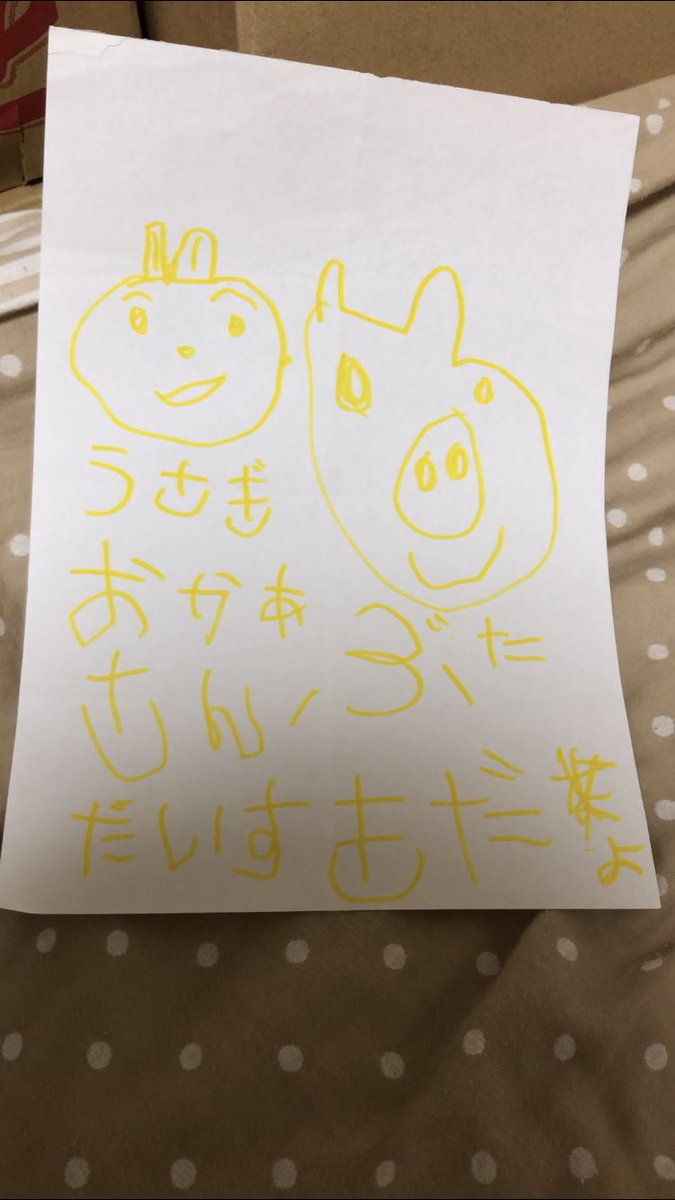 うさぎ
ぶた
おかあ
さん
だいすきだ
よ